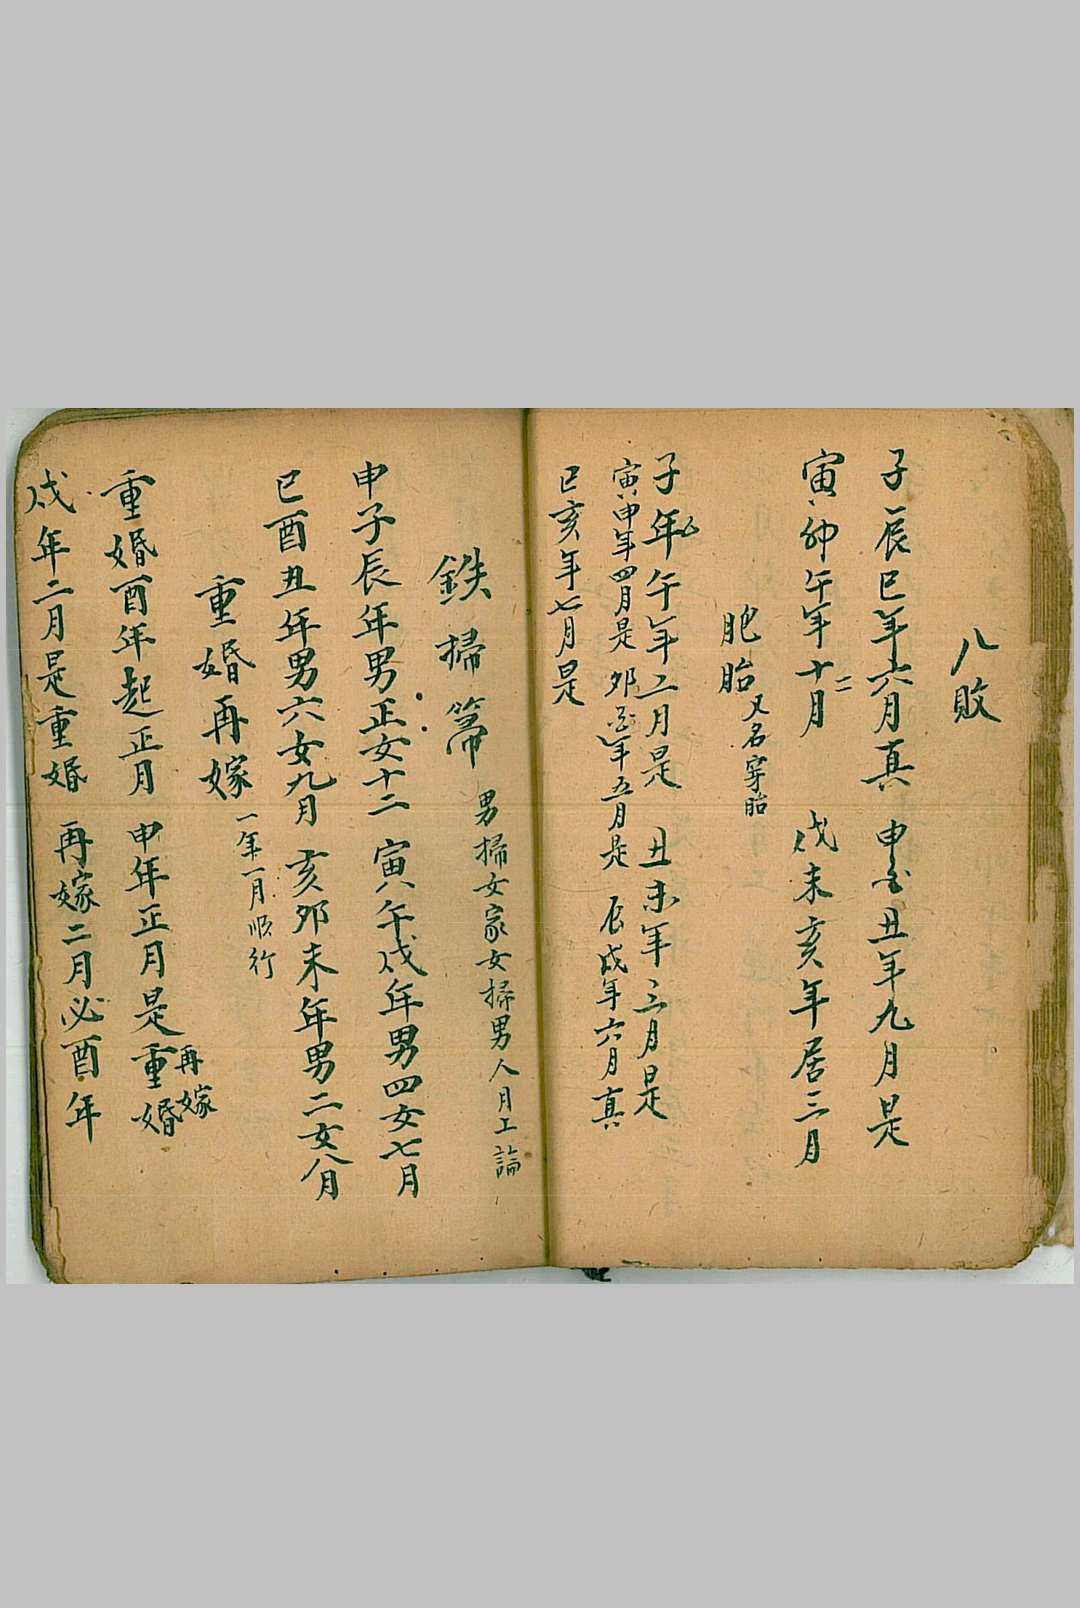 八敗
子辰巳年六月真 申酉丑年九月是
寅卯午年十二月 戌未亥年居三月
肥胎 又名寡胎
子年午年二月是 丑未年三月是
寅申年四月是 卯酉年五月是 辰戌年六月真
巳亥年七月是
鉄掃箒 男掃女家女掃男人月上論
申子辰年男正女十二 寅午戌年男四女七月
巳酉丑年男六女九月 亥卯未年男二女八月
重婚再嫁 一年一月順行
重婚酉年起正月 申年正月是重婚 再嫁
戌年二月是重婚 再嫁二月必酉年